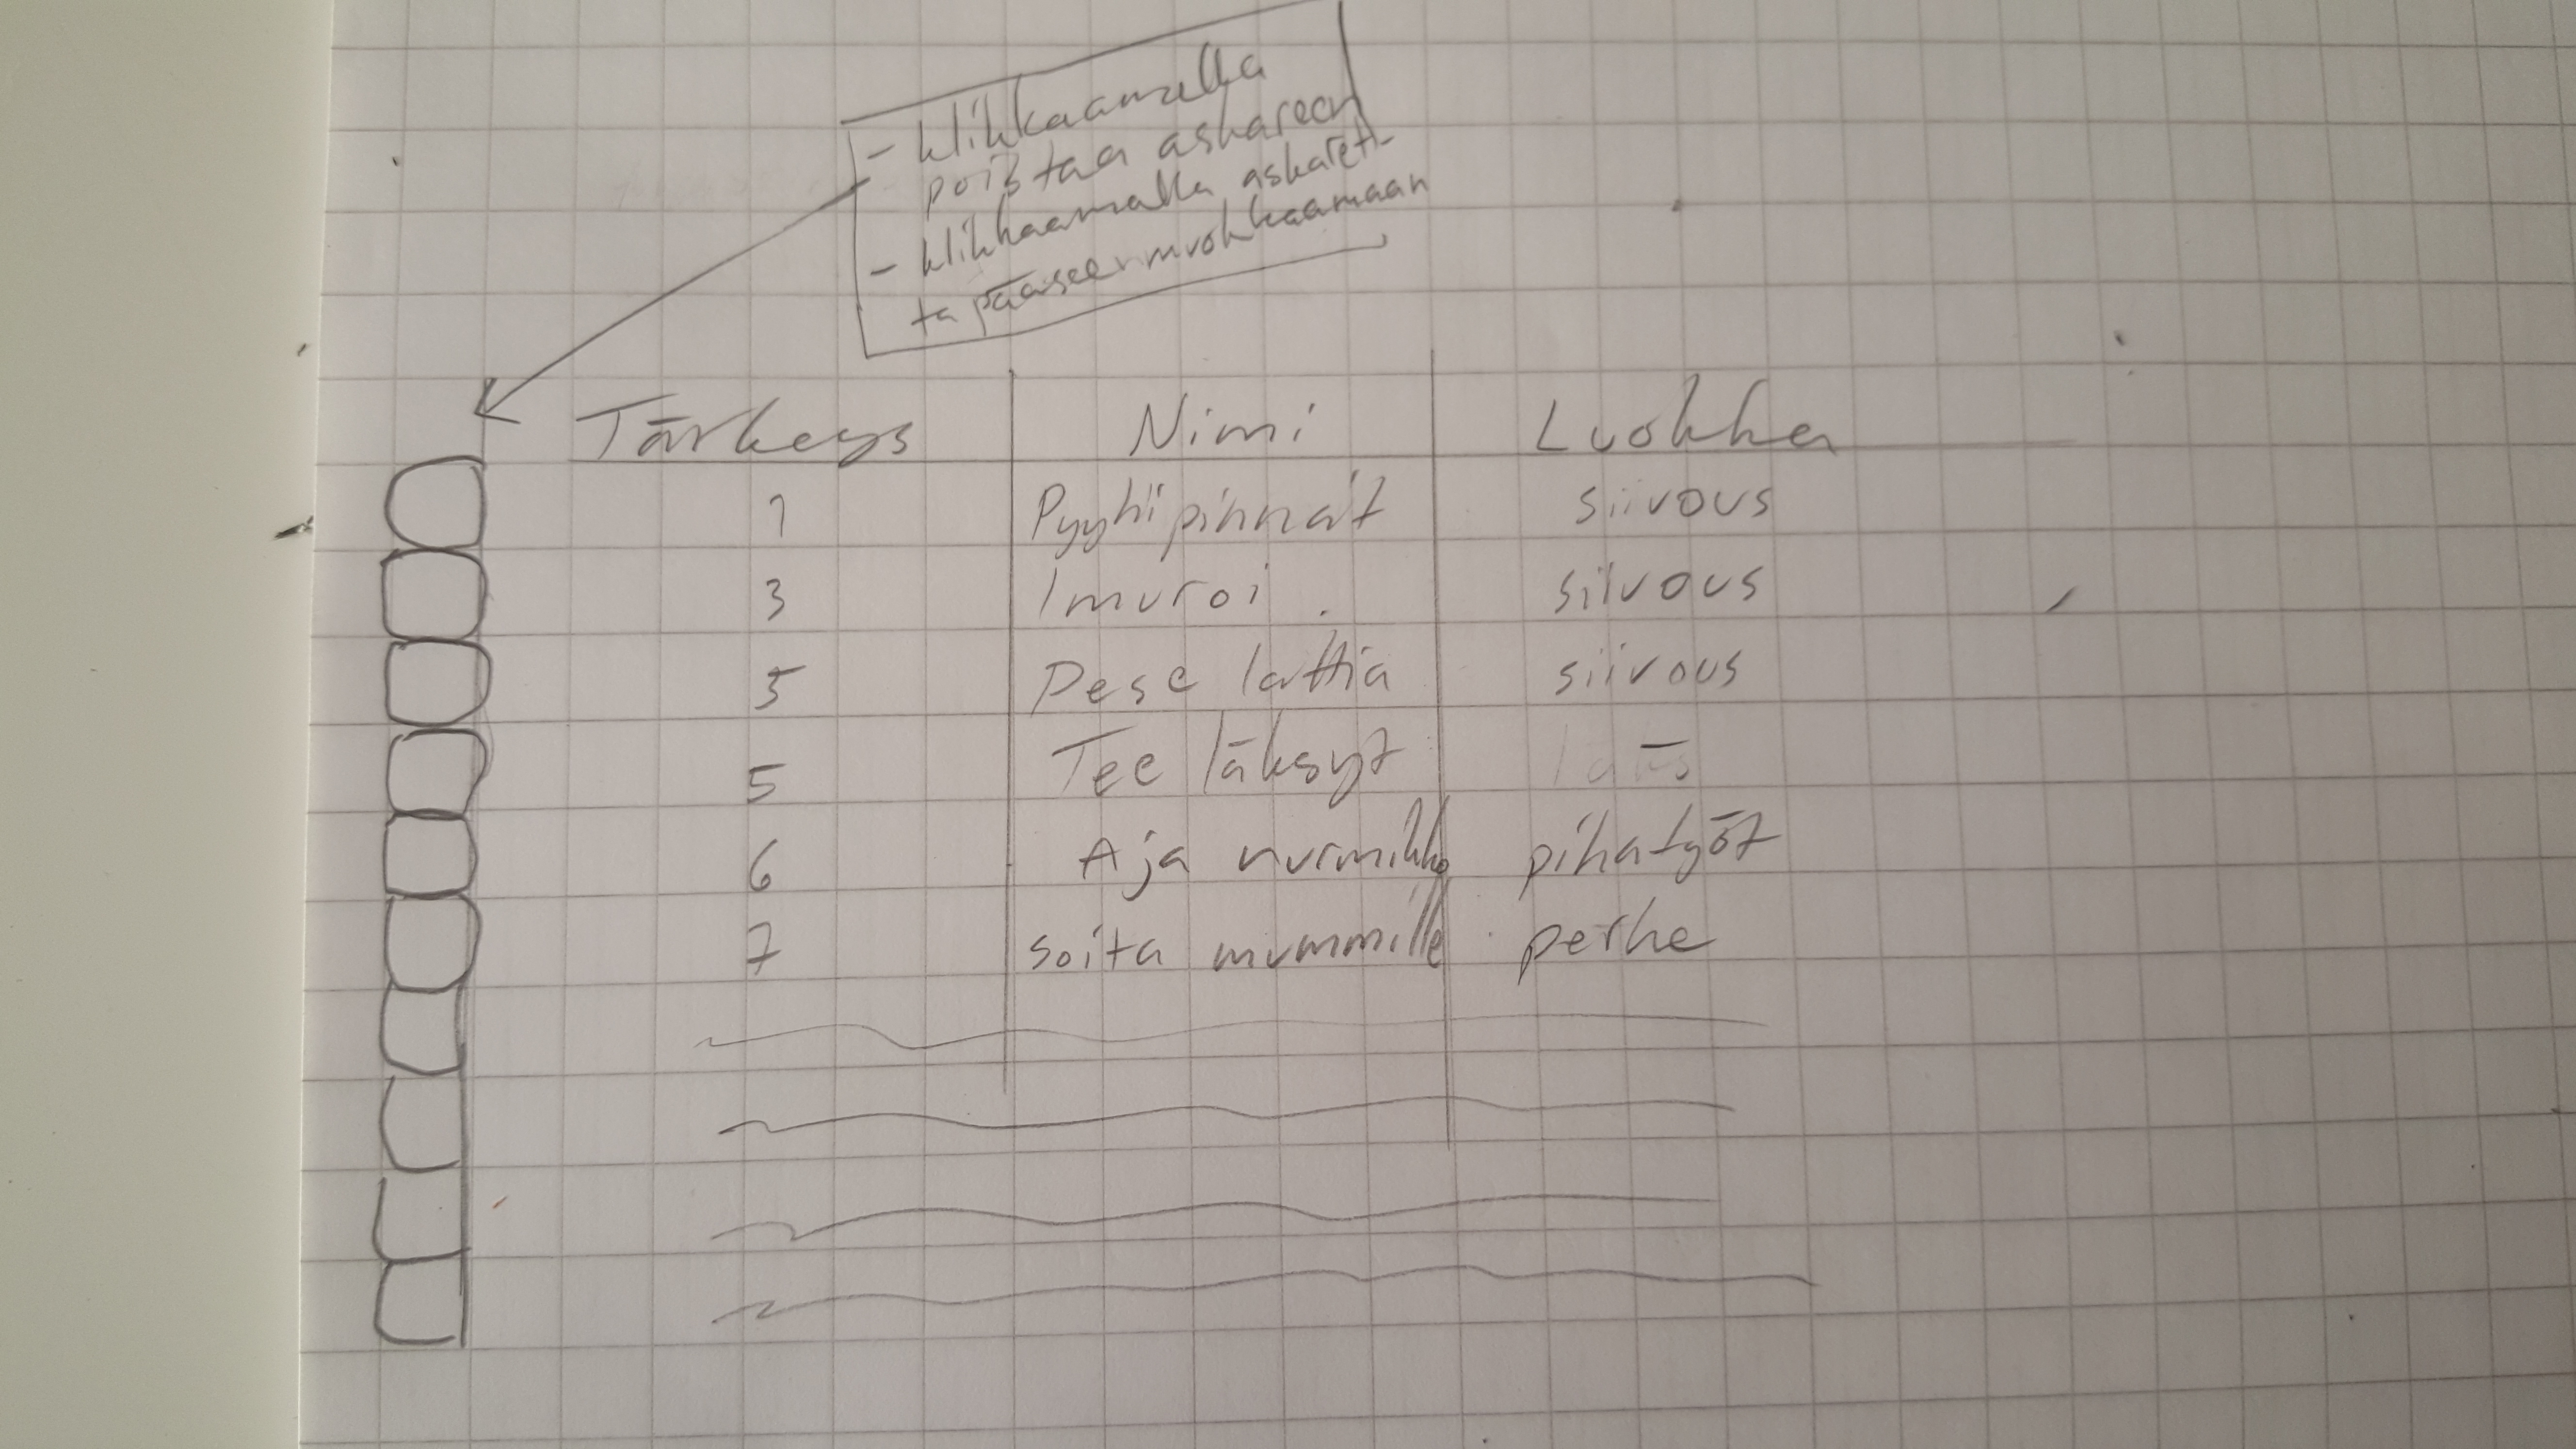 - klikkaamalla
poistaa askareen
- klikkaamalla askaret-
ta pääsee muokkaamaan
Tärkeys Nimi Luokka
1 Pyyhi pinnat siivous
3 Imuroi siivous
5 Pese lattia siivous
5 Tee läksyt
6 Aja nurmikko pihatyöt
7 soita mummille perhe